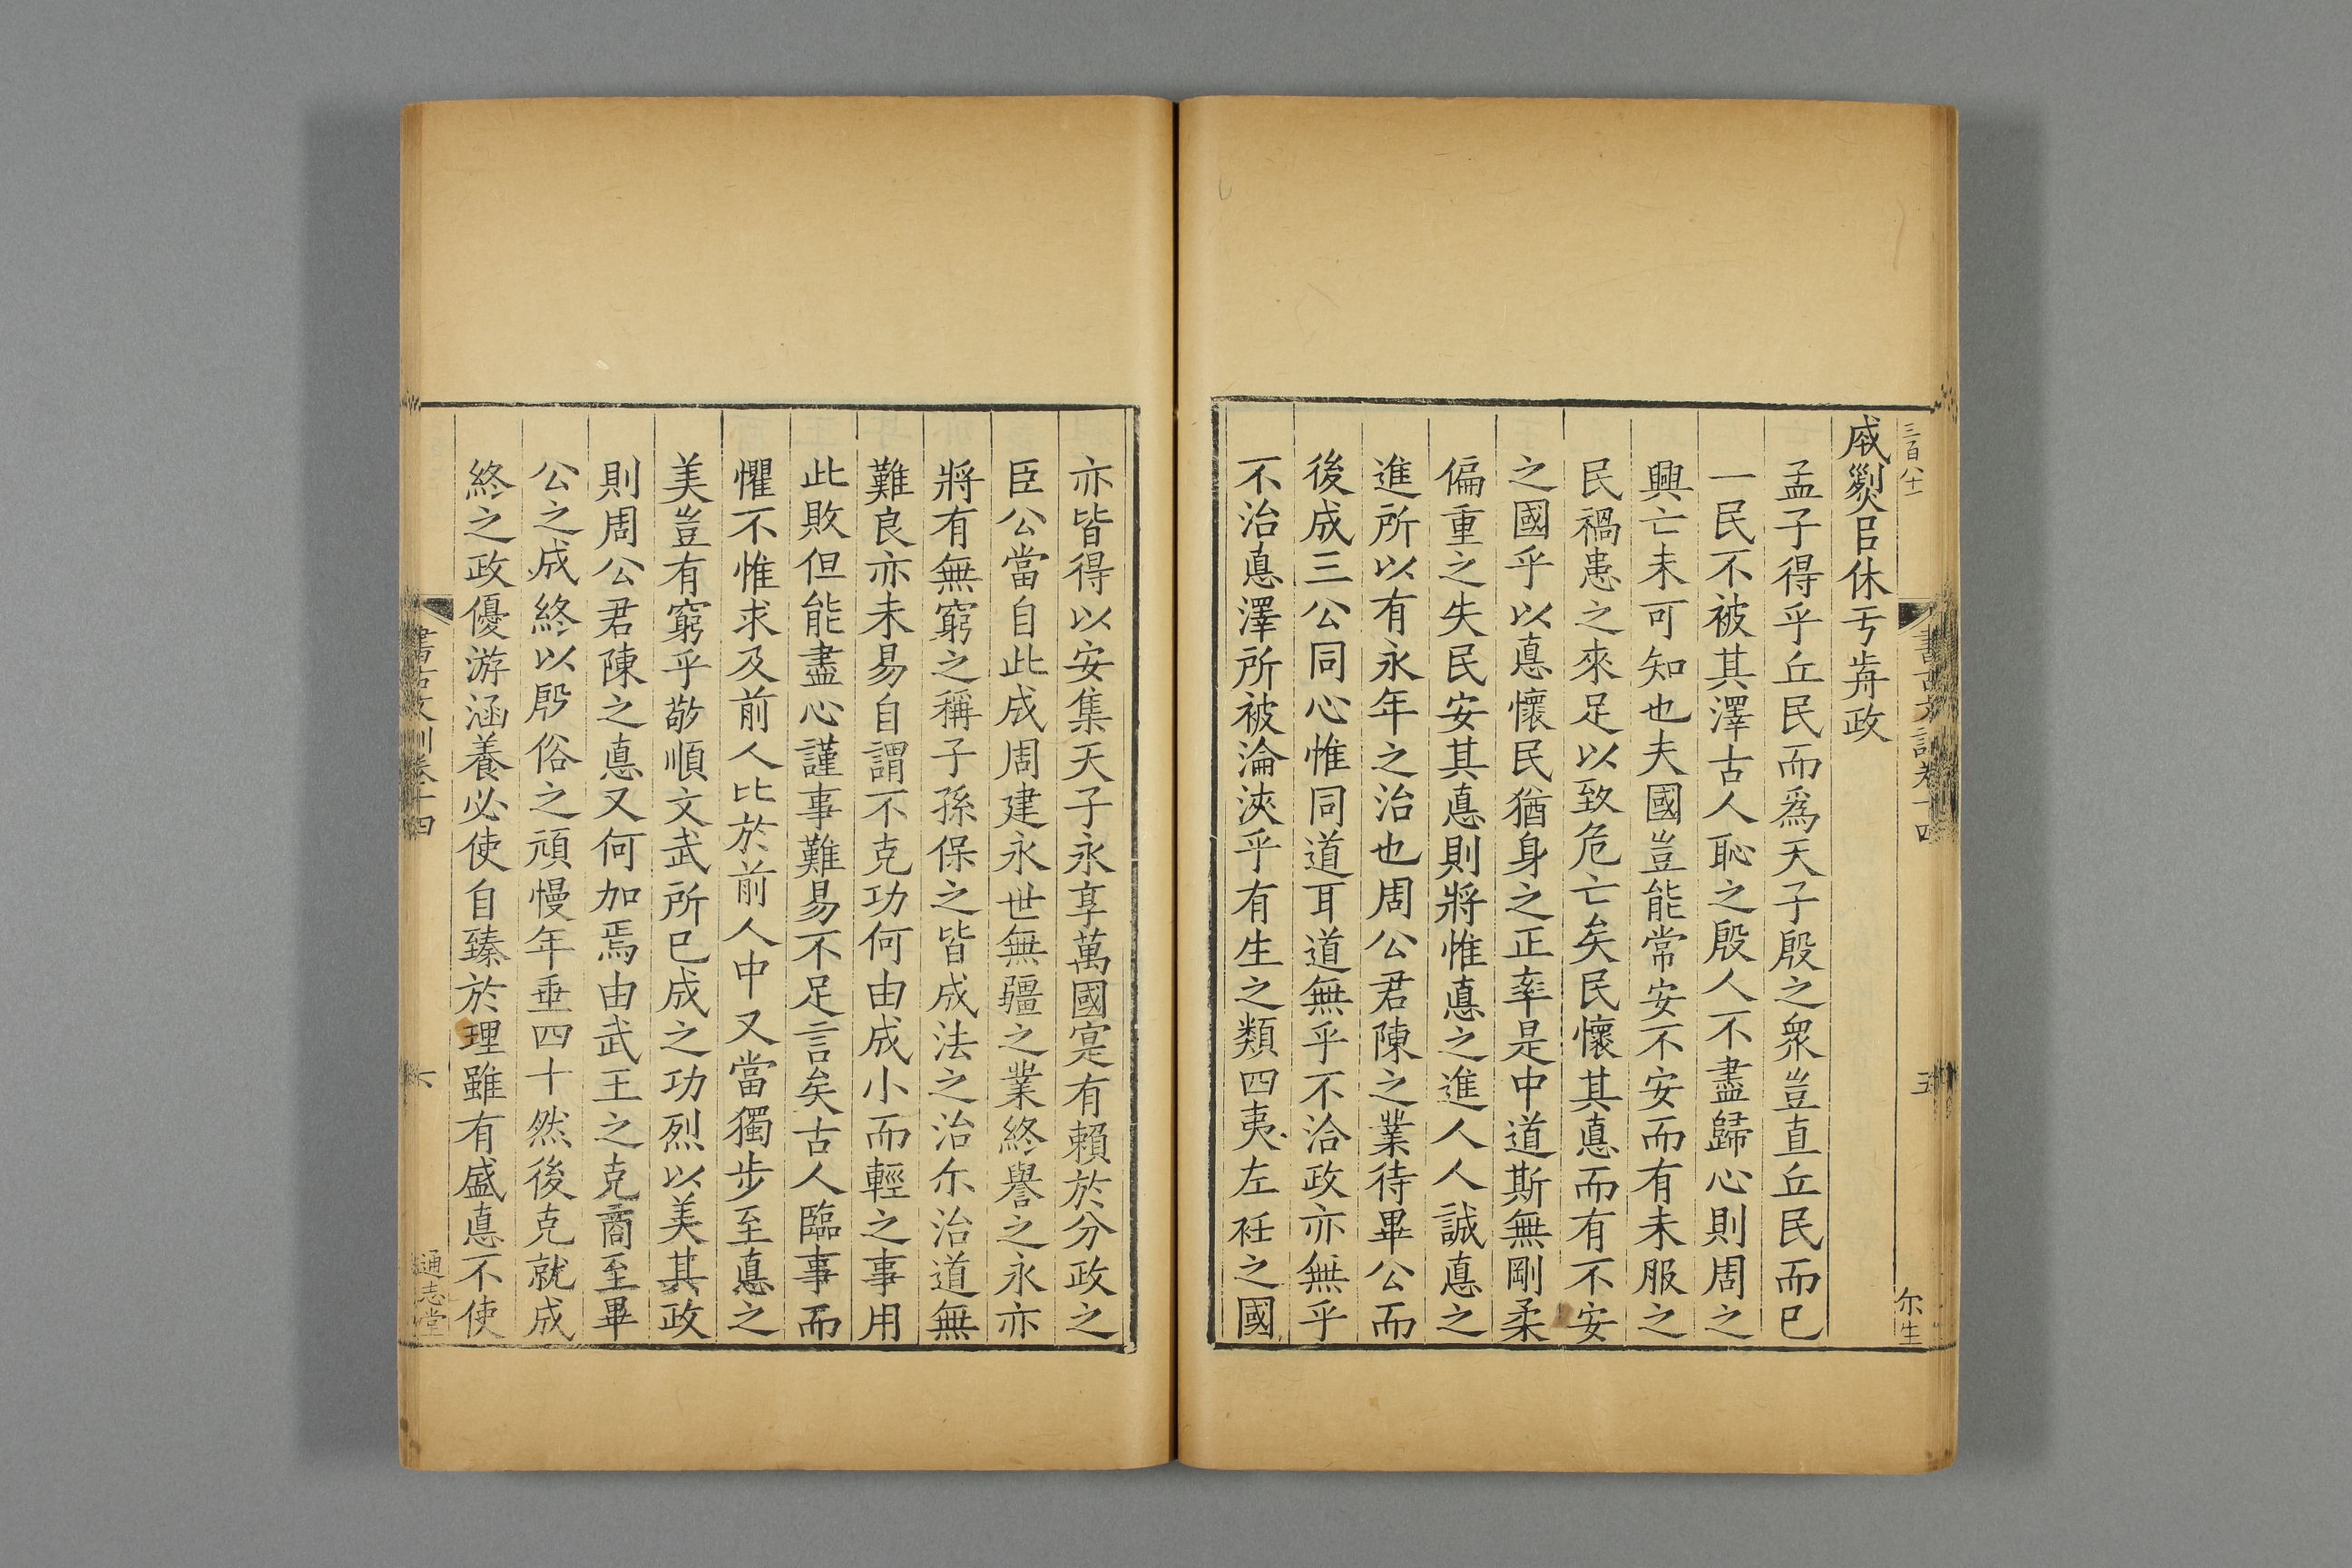 三百八十一
書古文訓卷十四
五
尓生
休亐歬政
孟子得乎丘民而爲天子殷之衆豈直丘民而已
一民不被其澤古人恥之殷人不盡歸心則周之
興亡未可知也夫國豈能常安不安而有未服之
民禍患之來足以致危亡矣民懷其悳而有不安
之國乎以悳懷民猶身之正率是中道斯無剛柔
偏重之失民安其悳則將惟悳之進人人誠悳之
進所以有永年之治也周公君陳之業待畢公而
後成三公同心惟同道耳道無乎不洽政亦無乎
不治悳澤所被淪浹乎有生之類四夷左衽之國
亦皆得以安集天子永享萬國寔有賴於分政之
臣公當自此成周建永世無疆之業終譽之永亦
將有無窮之稱子孫保之皆成法之治尓治道無
難良亦未易自謂不克功何由成小而輕之事用
此敗但能盡心謹事難易不足言矣古人臨事而
懼不惟求及前人比於前人中又當獨步至悳之
美豈有窮乎敬順文武所已成之功烈以美其政
則周公君陳之悳又何加焉由武王之克商至畢
公之成終以殷俗之頑慢年垂四十然後克就成
終之政優游涵養必使自臻於理雖有盛悳不使
書古文訓卷十四
六
通志堂